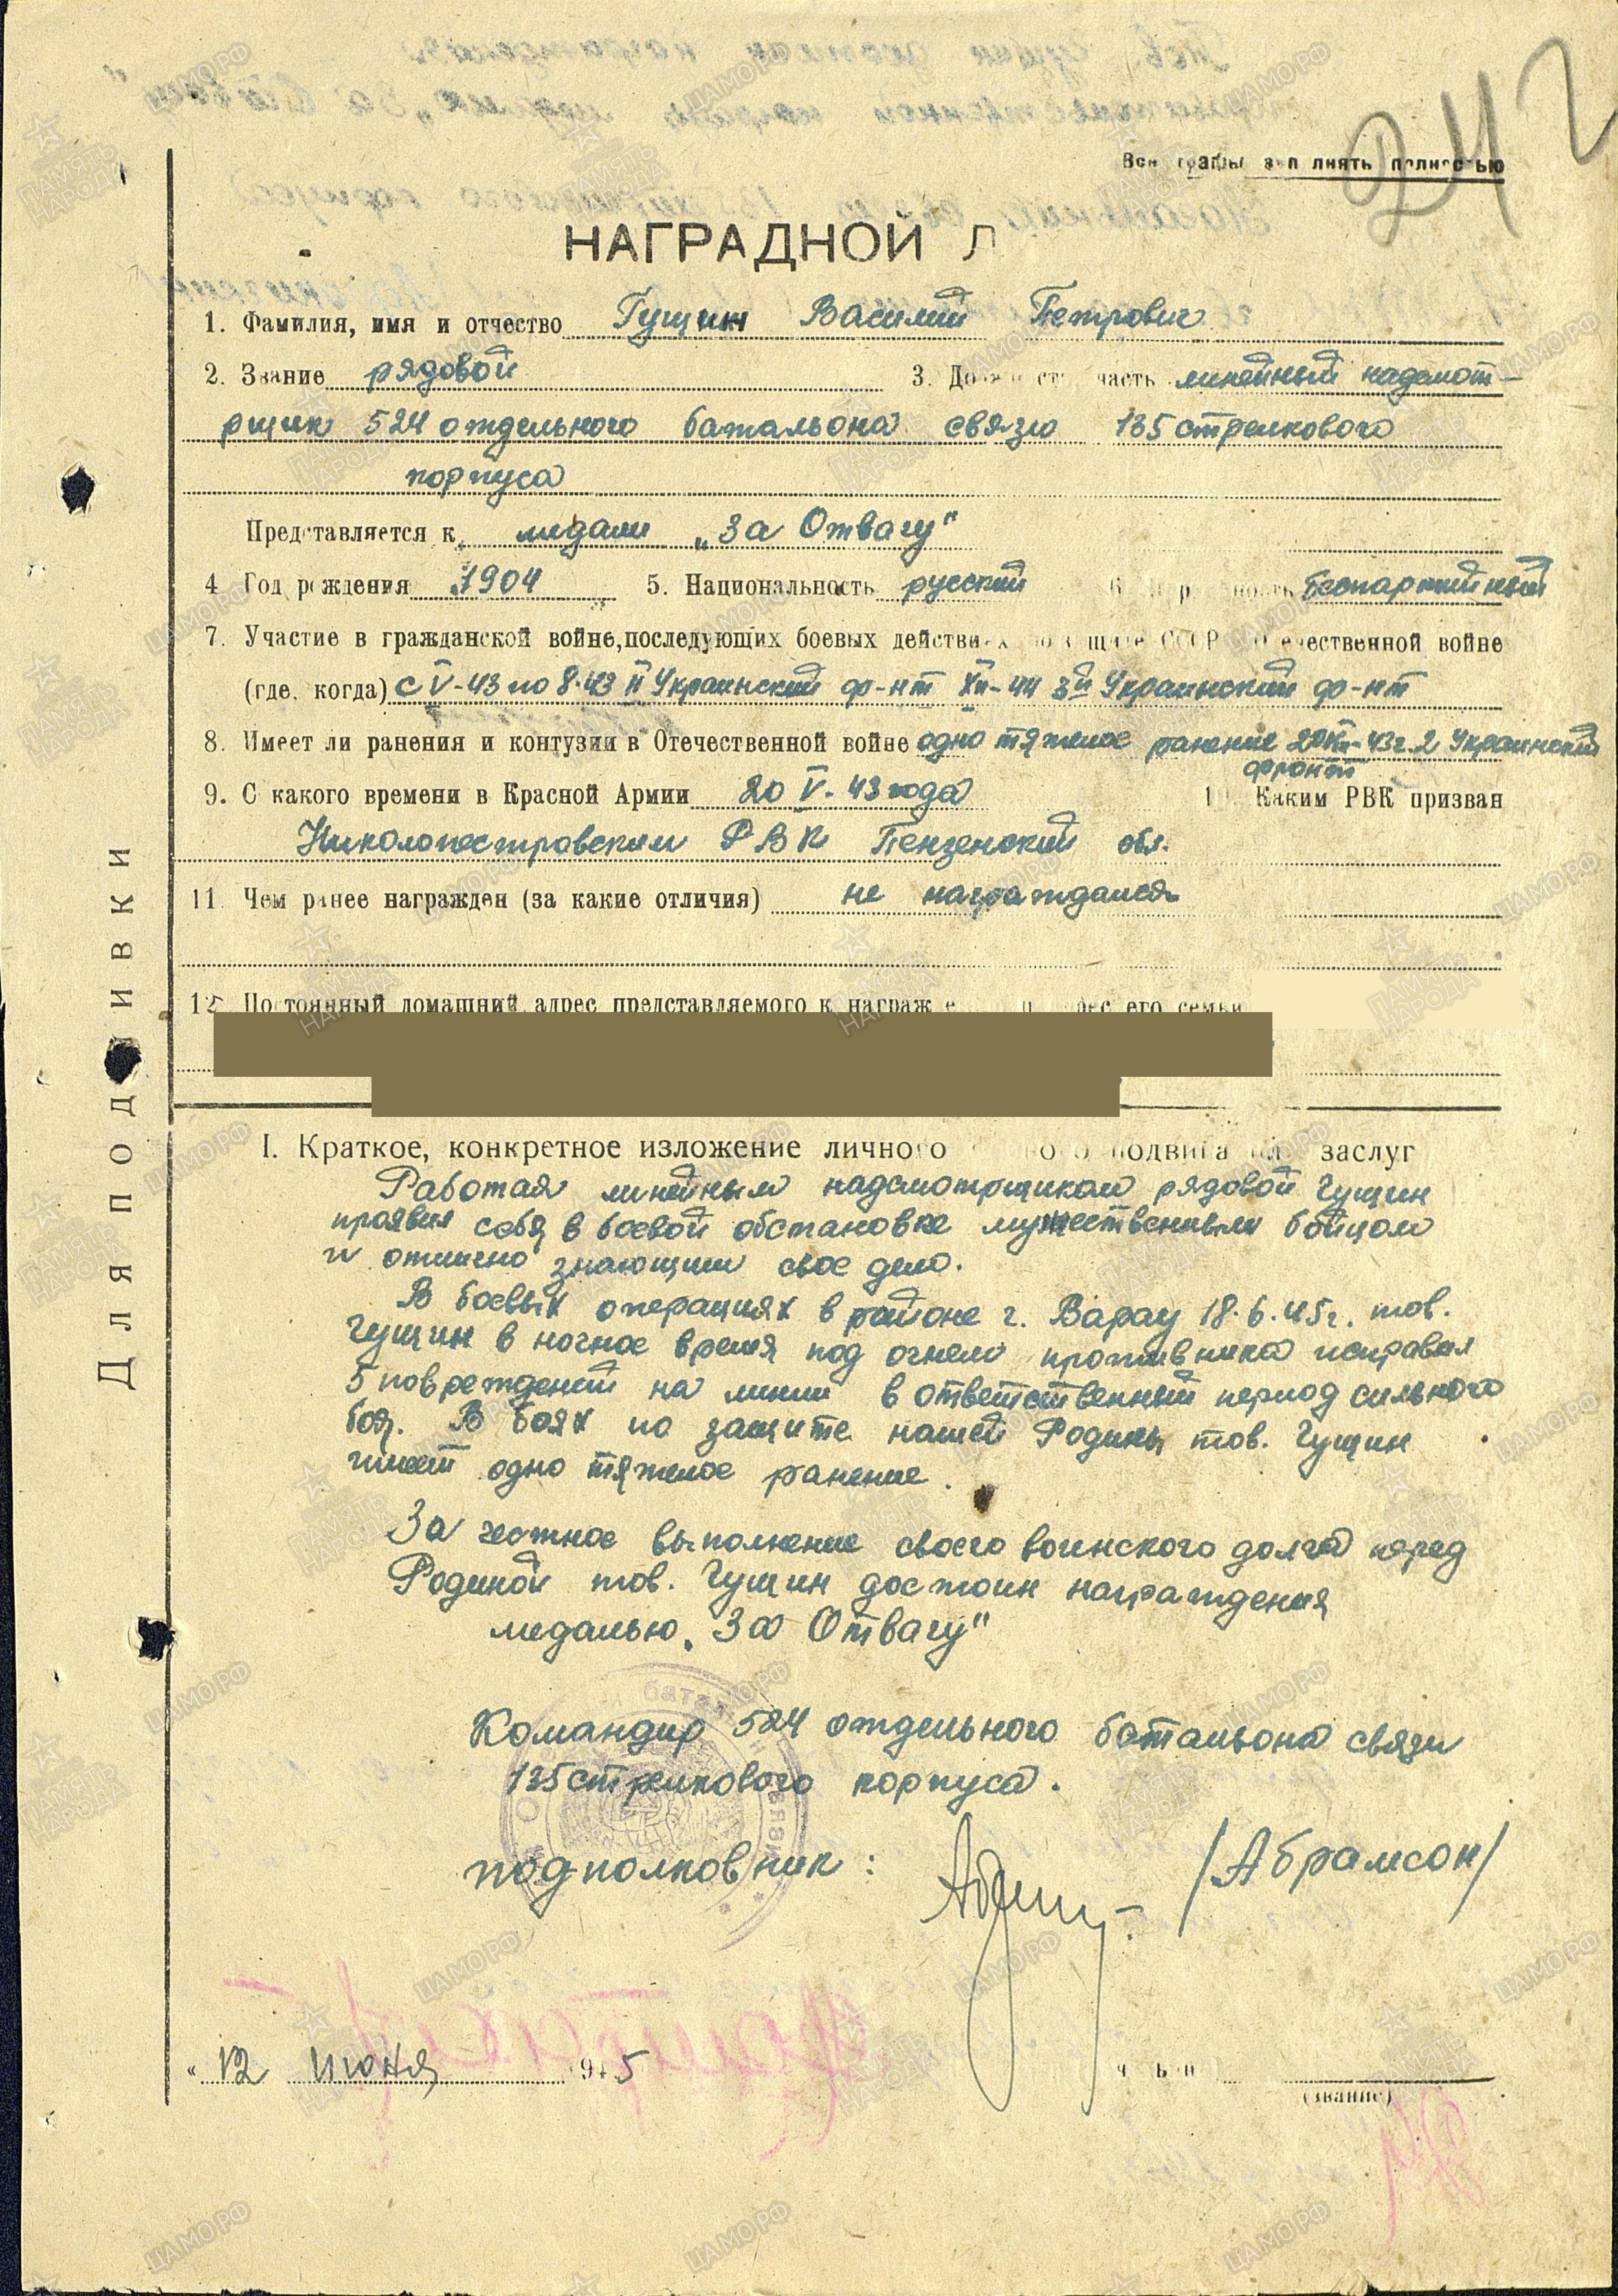 Все графы зап лнять полностью
НАГРАДНОЙ Л
1. Фамилия, имя и отчество Гущин Василий Петрович
2. Звание рядовой 3. Должность, часть линейный надсмот-
рщик 524 отдельного батальона связи 135 стрелкового
корпуса
Представляется к медали „За Отвагу"
4 Год рождения 1904 5. Национальность русский 6. беспартийный
7. Участие в гражданской войне, последующих боевых действиях по защите СССР Отечественной войне
(где, когда) с V-43 по 8.43 II Украинский фр-нт XII-44 3й Украинский фр-нт
8. Имеет ли ранения и контузии в Отечественной войне одно тяжелое ранение 43г. 2 Украинский
фронт
9. С какого времени в Красной Армии 20 V-43 года 1 Каким РВК призван
Николопестровским РВК Пензенский обл.
11. Чем ранее награжден (за какие отличия) не награждался
12 Постоянный домашний адрес представляемого к награж е адрес его семьи
Для подшивки
I. Краткое, конкретное изложение личного подвига или заслуг
Работая линейным надсмотрщиком рядовой Гущин
проявил себя в боевой обстановке мужественным бойцом
и отлично знающим свое дело.
В боевых операциях в районе г. Варау 18.6.45г. тов.
Гущин в ночное время под огнем противника исправил
5 повреждений на линии в ответственный период сильного
боя. В боях по защите нашей Родины тов. Гущин
имеет одно тяжелое ранение.
За честное выполнение своего воинского долга перед
Родиной тов. Гущин достоин награждения
медалью „За Отвагу"
Командир 524 отдельного батальона связи
135 стрелкового корпуса.
подполковник: /Абрамсон/
« 12 июня 1945
(звание)
ПАМЯТЬ НАРОДА
ЦАМО РФ